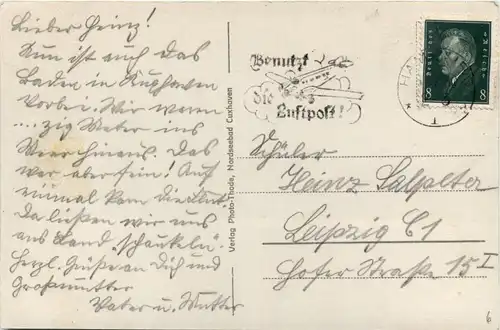 Lieber Heinz!
Nun ist auch das
Baden in Kuxhaven
vorbei. Wir waren
....zig Meter ins
Meer hinaus. Das
war aber fein! Auf
einmal kam die Flut.
Da ließen wir uns
ans Land "schaukeln".
Herzl. Grüße an Dich und
Großmutter
Vater u. Mutter
Verlag Photo-Thode, Nordseebad Cuxhaven
Benutzt
die
Luftpost!
Deutsches Reich
8 8
1
Schüler
Heinz Salpeter
Leipzig C1
Hofer Straße 15 I
6